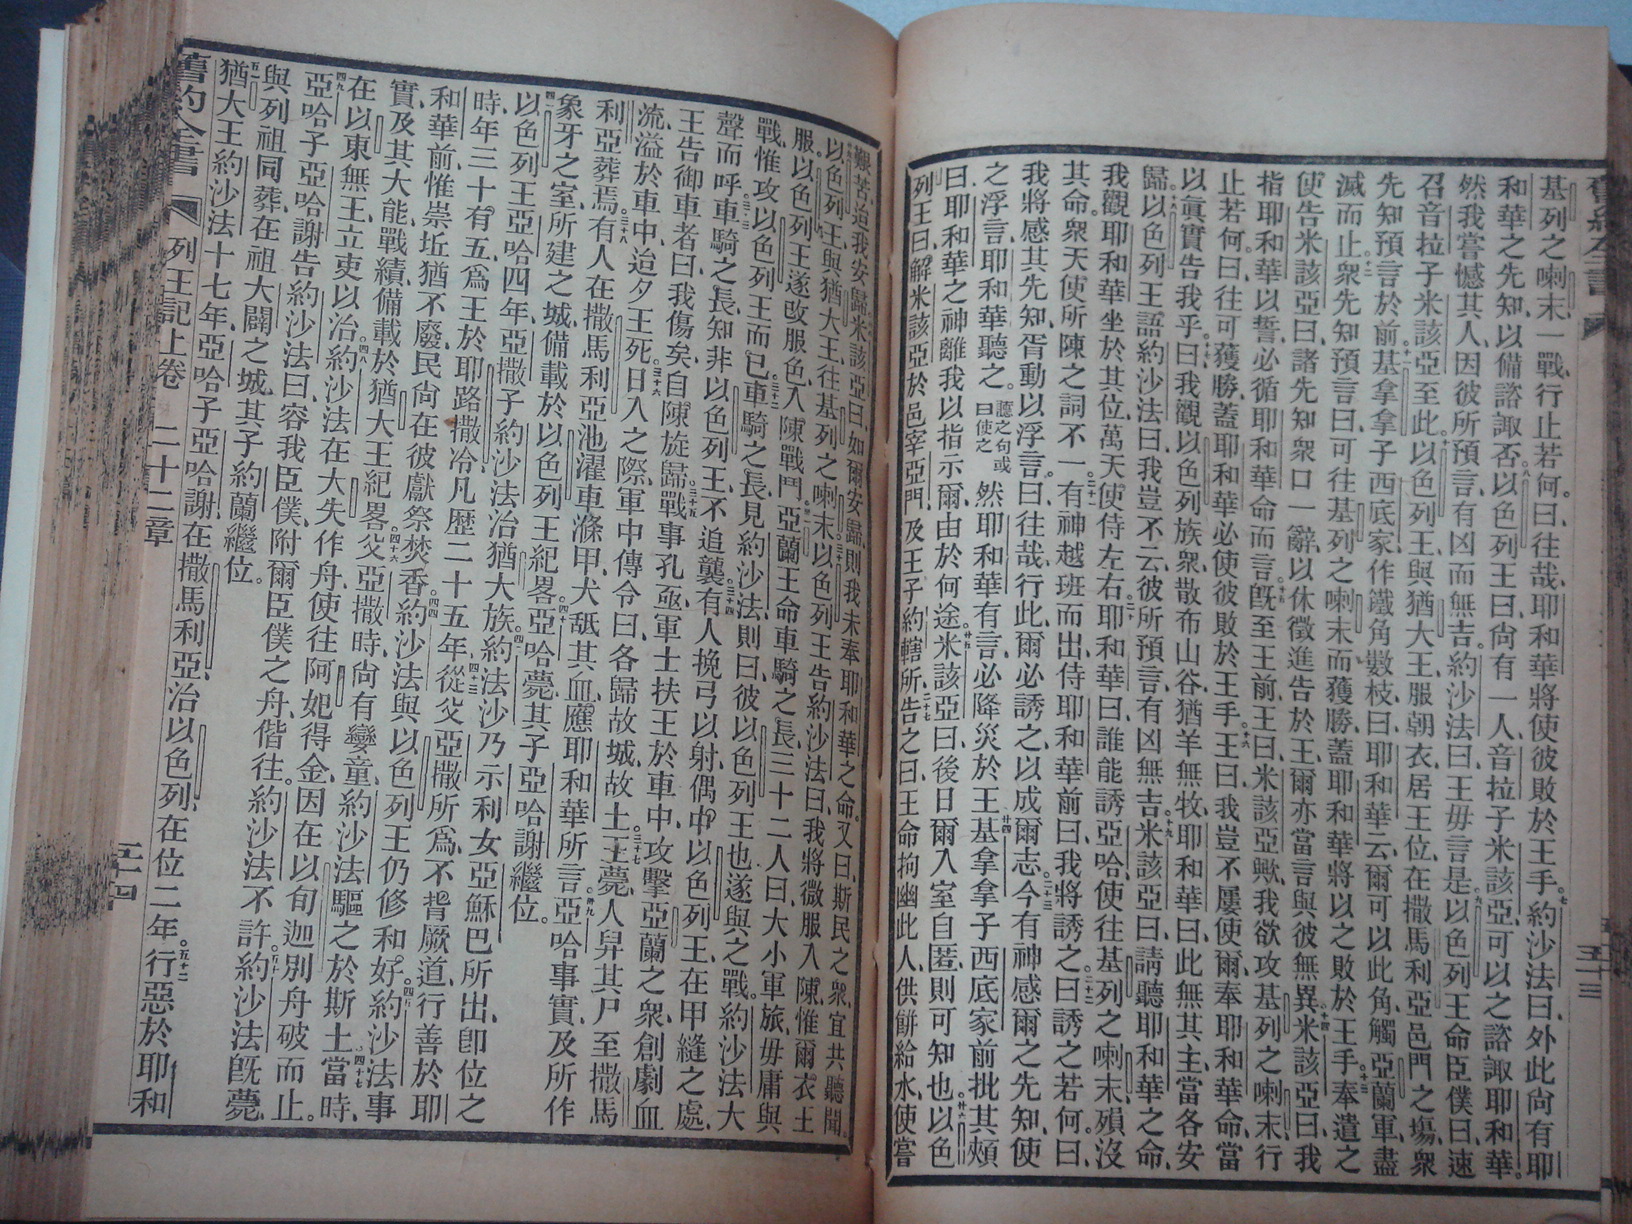 基列之喇末一戰、行止若何、曰、往哉、耶和華將使彼敗於王手。七約沙法曰、外此尚有耶
和華之先知、以備諮諏否。八以色列王曰、尚有一人、音拉子米該亞、可以之諮諏耶和華。
然我嘗憾其人、因彼所預言、有凶而無吉。約沙法曰、王毋言是。九以色列王命臣僕曰、速
召音拉子米該亞至此。十以色列王與猶大王、服朝衣、居王位、在撒馬利亞邑門之塲、衆
先知預言於前。十一基拿拿子西底家作鐵角數枝、曰、耶和華云、爾可以此角觸亞蘭軍、盡
滅而止。十二衆先知預言曰、可往基列之喇末而獲勝、蓋耶和華將以之敗於王手。十三奉遣之
使、告米該亞曰、諸先知衆口一辭、以休徵進告於王、爾亦當言與彼無異。十四米該亞曰、我
指耶和華以誓、必循耶和華命而言。十五旣至王前、王曰、米該亞歟、我欲攻基列之喇末、行
止若何。曰、往可獲勝、蓋耶和華必使彼敗於王手。十六王曰、我豈不屢使爾、奉耶和華命、當
以眞實告我乎。十七曰、我觀以色列族衆、散布山谷、猶羊無牧、耶和華曰、此無其主、當各安
歸。十八以色列王語約沙法曰、我豈不云、彼所預言、有凶無吉。十九米該亞曰、請聽耶和華之命、
我觀耶和華坐於其位、萬天使侍左右。二十耶和華曰、誰能誘亞哈、使往基列之喇末、殞沒
其命。衆天使所陳之詞不一。二十一有神越班而出、侍耶和華前、曰、我將誘之。二十二曰、誘之若何。曰、
我將感其先知、胥動以浮言。曰、往哉、行此、爾必誘之、以成爾志。二十三今有神感爾之先知、使
之浮言、耶和華聽之。聽之句或曰使之 然耶和華有言、必降災於王。廿四基拿拿子西底家前批其頰、
曰、耶和華之神離我、以指示爾、由於何途。廿五米該亞曰、後日爾入室自匿、則可知也。廿六以色
列王曰、解米該亞於邑宰亞門、及王子約轄所。二十七告之曰、王命拘幽此人、供餅給水、使嘗
艱苦、迨我安歸。米該亞曰、如爾安歸、則我未奉耶和華之命、又曰、斯民之衆、宜共聽聞。
以色列王與猶大王往基列之喇末。三十以色列王告約沙法曰、我將微服入陳、惟爾衣王
服、以色列王遂改服色、入陳戰鬥。亞蘭王命車騎之長三十二人曰、大小軍旅、毋庸與
戰、惟攻以色列王而已。三十二車騎之長見約沙法、則曰、彼以色列王也、遂與之戰、約沙法大
聲而呼、三十三車騎之長知非以色列王、不追襲。三十四有人挽弓以射、偶中以色列王、在甲縫之處、
王告御車者曰、我傷矣、自陳旋歸。三十五戰事孔亟、軍士扶王於車中、攻擊亞蘭之衆、創劇血
流、溢於車中、迨夕王死。三十六日入之際、軍中傳令曰、各歸故城故土。三十七王薨、人舁其尸至撒馬
利亞葬焉。三十八有人在撒馬利亞池濯車滌甲、犬舐其血、應耶和華所言。卅九亞哈事實、及所作
象牙之室、所建之城、備載於以色列王紀畧。四十亞哈薨、其子亞哈謝繼位。
四一以色列王亞哈四年、亞撒子約沙法治猶大族。四二約沙法乃示利女亞穌巴所出、卽位之
時、年三十有五、爲王於耶路撒冷、凡歷二十五年。四十三從父亞撒所爲、不背厥道、行善於耶
和華前、惟崇坵猶不廢、民尚在彼獻祭焚香。四四約沙法與以色列王仍修和好。四五約沙法事
實、及其大能、戰績、備載於猶大王紀畧。四十六父亞撒時、尚有孌童、約沙法驅之於斯土。四十七當時、
在以東無王、立吏以治。四八約沙法在大失作舟、使往阿妃得金、因在以旬迦別舟破而止。
四九亞哈子亞哈謝告約沙法曰、容我臣僕、附爾臣僕之舟偕往。約沙法不許。五十約沙法旣薨、
與列祖同葬、在祖大闢之城、其子約蘭繼位。
五一猶大王約沙法十七年、亞哈子亞哈謝、在撒馬利亞、治以色列、在位二年。五十二行惡於耶和
舊約全書 列王紀上卷 二十二章 五十四
舊約全書 五十三